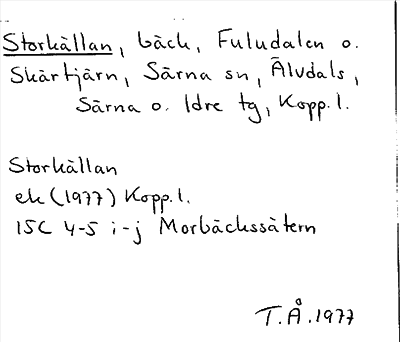 Storkällan, bäck, Fuludalen o.
Skärtjärn, Särna sn, Älvdals,
Särna o. Idre tg, Kopp. l.
Storkällan
ek (1977) Kopp. l.
15C 4-5 i-j Morbäckssätern
T.Å. 1977